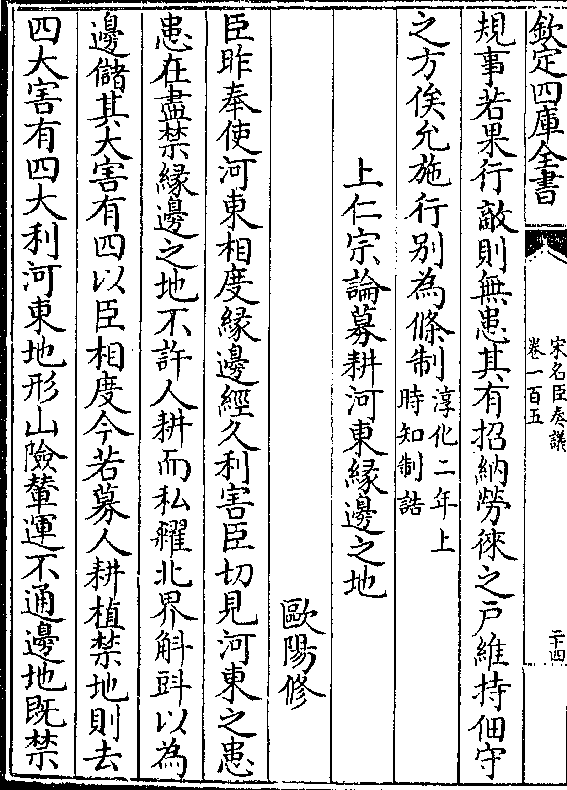 欽定四庫全書
宋名臣奏議
卷一百五
二十四
規事若果行敵則無患其有招納勞徠之戶維持佃守
之方俟允施行别為條制淳化二年上
時知制誥
上仁宗論募耕河東縁邊之地
歐陽修
臣昨奉使河東相度縁邊經久利害臣切見河東之患
患在盡禁縁邊之地不許人耕而私糴北界斛㪷以為
邊儲其大害有四以臣相度今若募人耕植禁地則去
四大害有四大利河東地形山險輦運不通邊地既禁